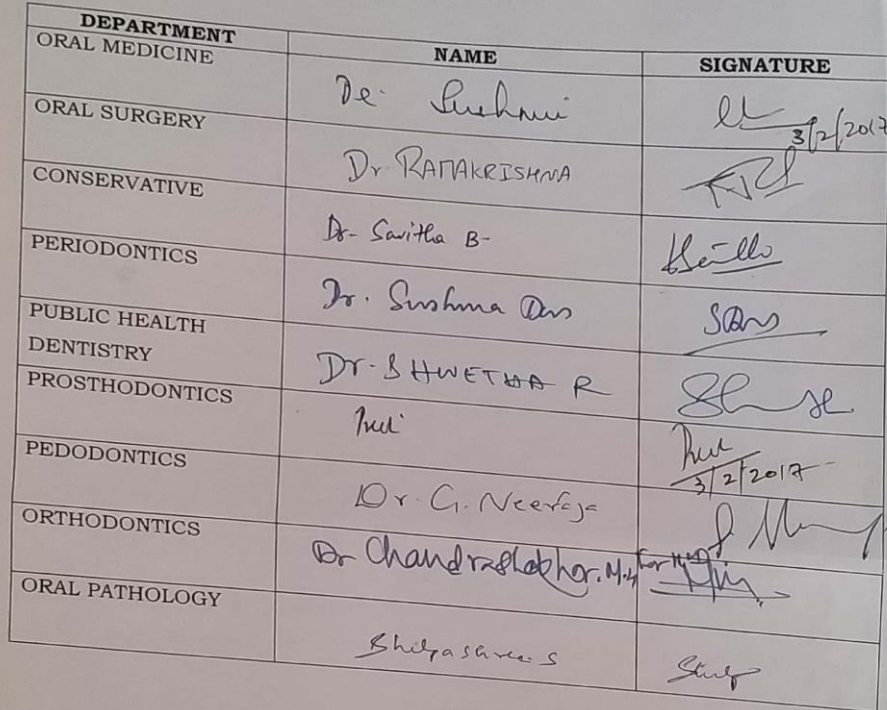 DEPARTMENT NAME SIGNATURE
ORAL MEDICINE
3/2/2017
ORAL SURGERY Dr. RAMAKRISHNA
CONSERVATIVE Dr. Savitha B
PERIODONTICS Dr. Sushma Das SDas
PUBLIC HEALTH
DENTISTRY Dr. SHWETHA R
PROSTHODONTICS
3/2/2017
PEDODONTICS Dr. G. Neeraja
ORTHODONTICS Dr Chandrashekhar. M.
ORAL PATHOLOGY Shilpashree. S